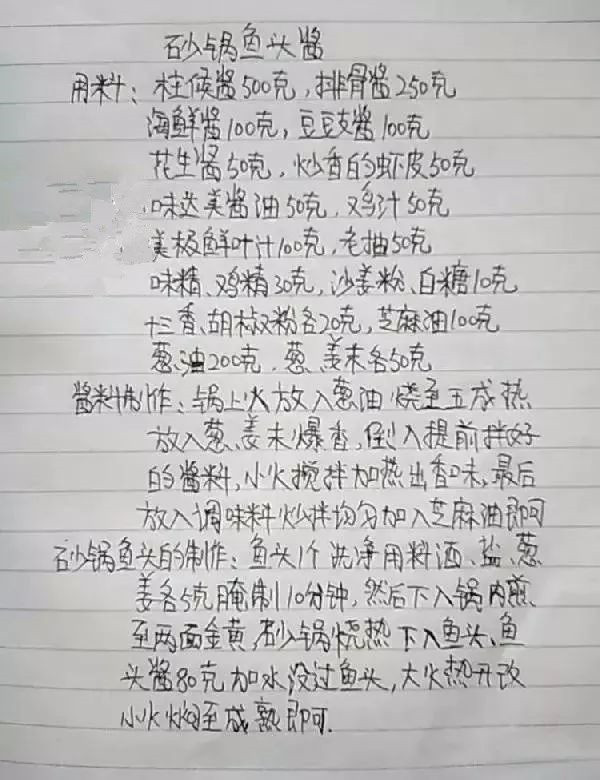 砂锅鱼头酱
用料：柱候酱500克，排骨酱250克
海鲜酱100克，豆豉酱100克
花生酱50克，炒香的虾皮50克
味达美酱油50克，鸡汁50克
美极鲜味汁100克，老抽50克
味精、鸡精30克，沙姜粉、白糖10克
十三香、胡椒粉各20克，芝麻油100克
葱油200克，葱、姜末各50克
酱料制作：锅上火放入葱油烧至五成热
放入葱、姜末爆香，倒入提前拌好
的酱料，小火搅拌加热出香味，最后
放入调味料炒拌均匀加入芝麻油即可
砂锅鱼头的制作：鱼头1个洗净用料酒、盐、葱
姜各5克腌制10分钟，然后下入锅内煎
至两面金黄，砂锅烧热下入鱼头、鱼
头酱80克加水没过鱼头，大火热开改
小火焖至成熟即可.